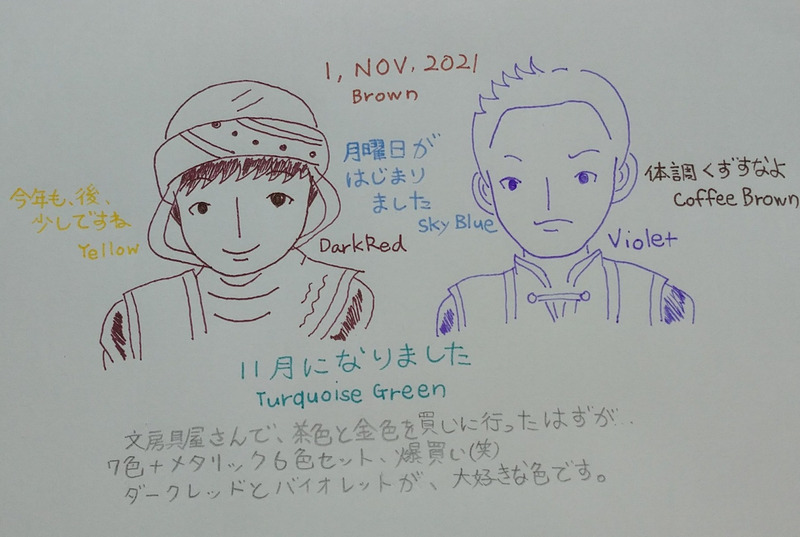 1, NOV. 2021
Brown
月曜日が
はじまり
ました
Sky Blue
今年も、後、
少しですね
Yellow
DarkRed
体調くずすなよ
Coffee Brown
Violet
11月になりました
Turquoise Green
文房具屋さんで、茶色と金色を買いに行ったはずが、
7色+メタリック6色セット、爆買い(笑)
ダークレッドとバイオレットが、大好きな色です。